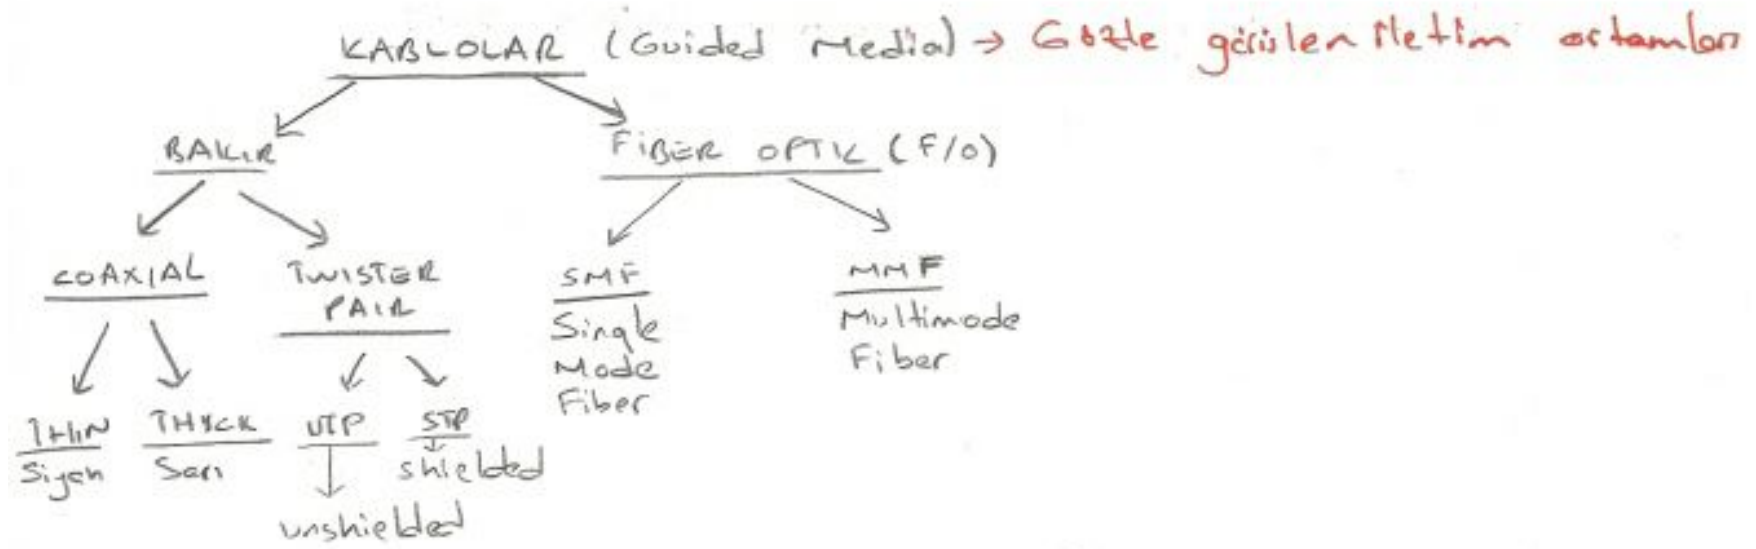 KABLOLAR (Guided Media) → Gözle görülen iletim ortamları
BAKIR
FiBER OPTIK (F/O)
COAXIAL
TWISTER
PAIR
SMF
Single
Mode
Fiber
MMF
Multimode
Fiber
THIN
Siyah
THYCK
Sarı
UTP
unshielded
STP
shielded